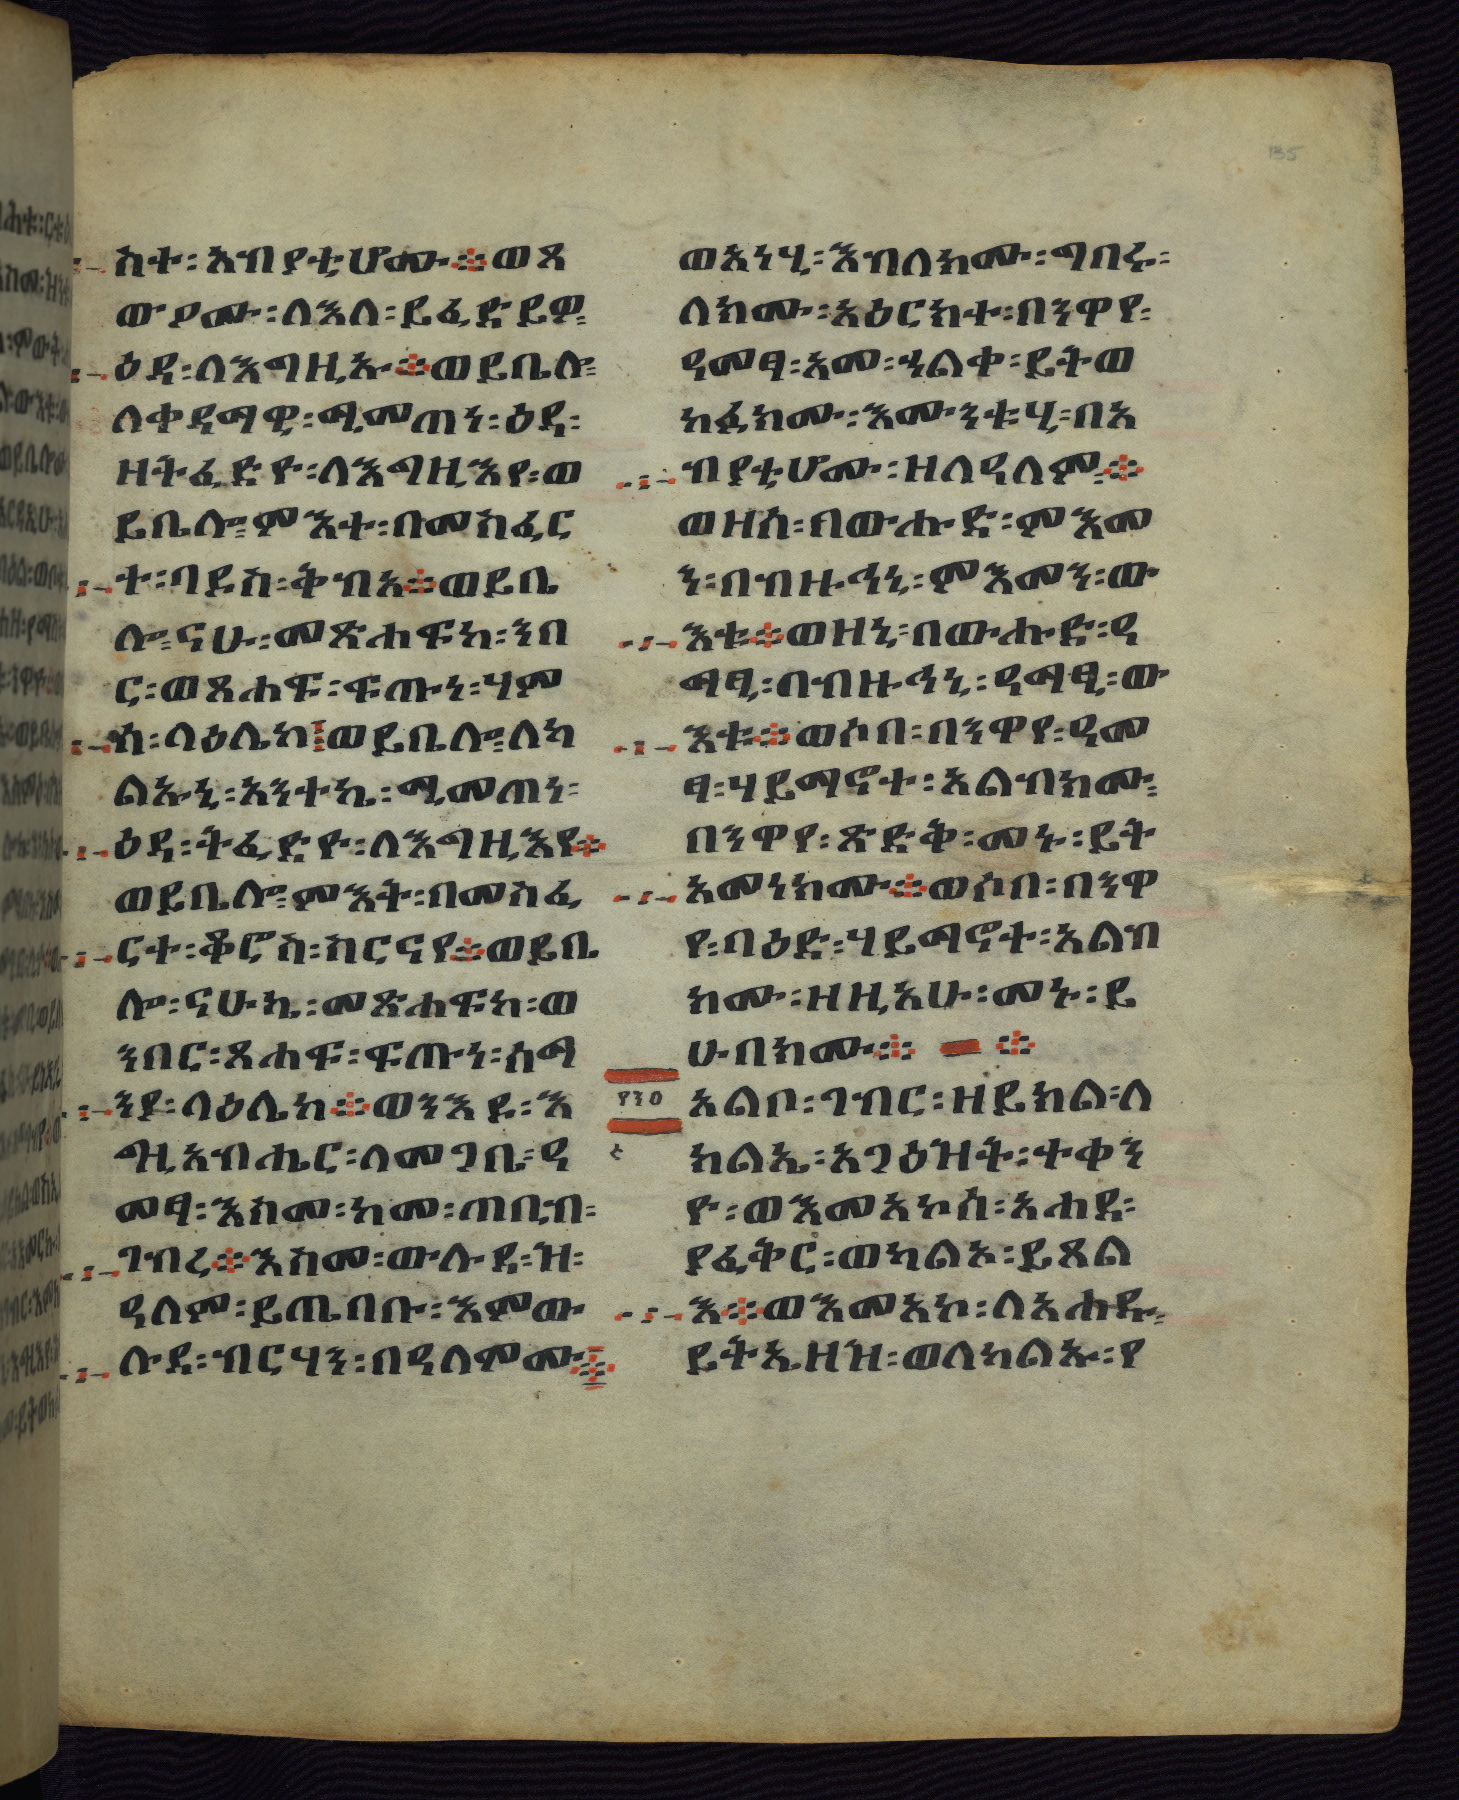 135
ስተ፡አብያቲሆሙ፨ወጸ
ውዖሙ፡ለእለ፡ይፈድይዎ፡
ዕዳ፡ለእግዚኡ፨ወይቤሎ፡
ለቀዳማዊ፡ሚመጠነ፡ዕዳ፡
ዘትፈድዮ፡ለእግዚእየ፡ወ
ይቤሎ፡ምእተ፡በመስፈር
ተ፡ባዶስ፡ቅብአ፨ወይቤ
ሎ፡ናሁ፡መጽሐፍከ፡ንበ
ር፡ወጸሐፍ፡ፍጡነ፡ሃም
ሳ፡ላዕሌከ፨ወይቤሎ፡ለካ
ልኡኒ፡አንተኬ፡ሚመጠነ፡
ዕዳ፡ትፈድዮ፡ለእግዚእየ፨
ወይቤሎ፡ምእት፡በመስፈ
ርተ፡ቆሮስ፡ስርናየ፨ወይቤ
ሎ፡ናሁኬ፡መጽሐፍከ፡ወ
ንበር፡ጸሐፍ፡ፍጡነ፡ስማ
ንያ፡ላዕሌከ፨ወንእዶ፡እ
ግዚአብሔር፡ለመጋቤ፡ዓ
መፃ፡እስመ፡ከመ፡ጠቢብ፡
ገብረ፨እስመ፡ውሉደ፡ዝ፡
ዓለም፡ይጤበቡ፡እምው
ሉደ፡ብርሃን፡በዓለምሙ፨
ወአነሂ፡እብለክሙ፡ግበሩ፡
ለክሙ፡አዕርክተ፡በንዋየ፡
ዓመፃ፡አመ፡ኃልቀ፡ይትወ
ከፈክሙ፡እሙንቱሂ፡በአ
ብያቲሆሙ፡ዘለዓለም፨
ወዘሰ፡በውሑድ፡ምእመ
ን፡በብዙኅኒ፡ምእመን፡ው
እቱ፨ወዘኒ፡በውሑድ፡ዓ
ማፂ፡በብዙኅኒ፡ዓማፂ፡ው
እቱ፨ወሶበ፡በንዋየ፡ዓመ
ፃ፡ሃይማኖተ፡አልብክሙ፡
በንዋየ፡ጽድቅ፡መኑ፡ይት
አመነክሙ፨ወሶበ፡በንዋ
የ፡ባዕድ፡ሃይማኖተ፡አልብ
ክሙ፡ዘዚአሁ፡መኑ፡ይ
ሁበክሙ፨ ፨
አልቦ፡ገብር፡ዘይክል፡ለ
ክልኤ፡አጋዕዝት፡ተቀን
ዮ፡ወእመአኮሰ፡አሐደ፡
ያፈቅር፡ወካልአ፡ይጸል
እ፨ወእመአኮ፡ለአሐዱ፡
ይትኤዘዝ፡ወለካልኡ፡የ